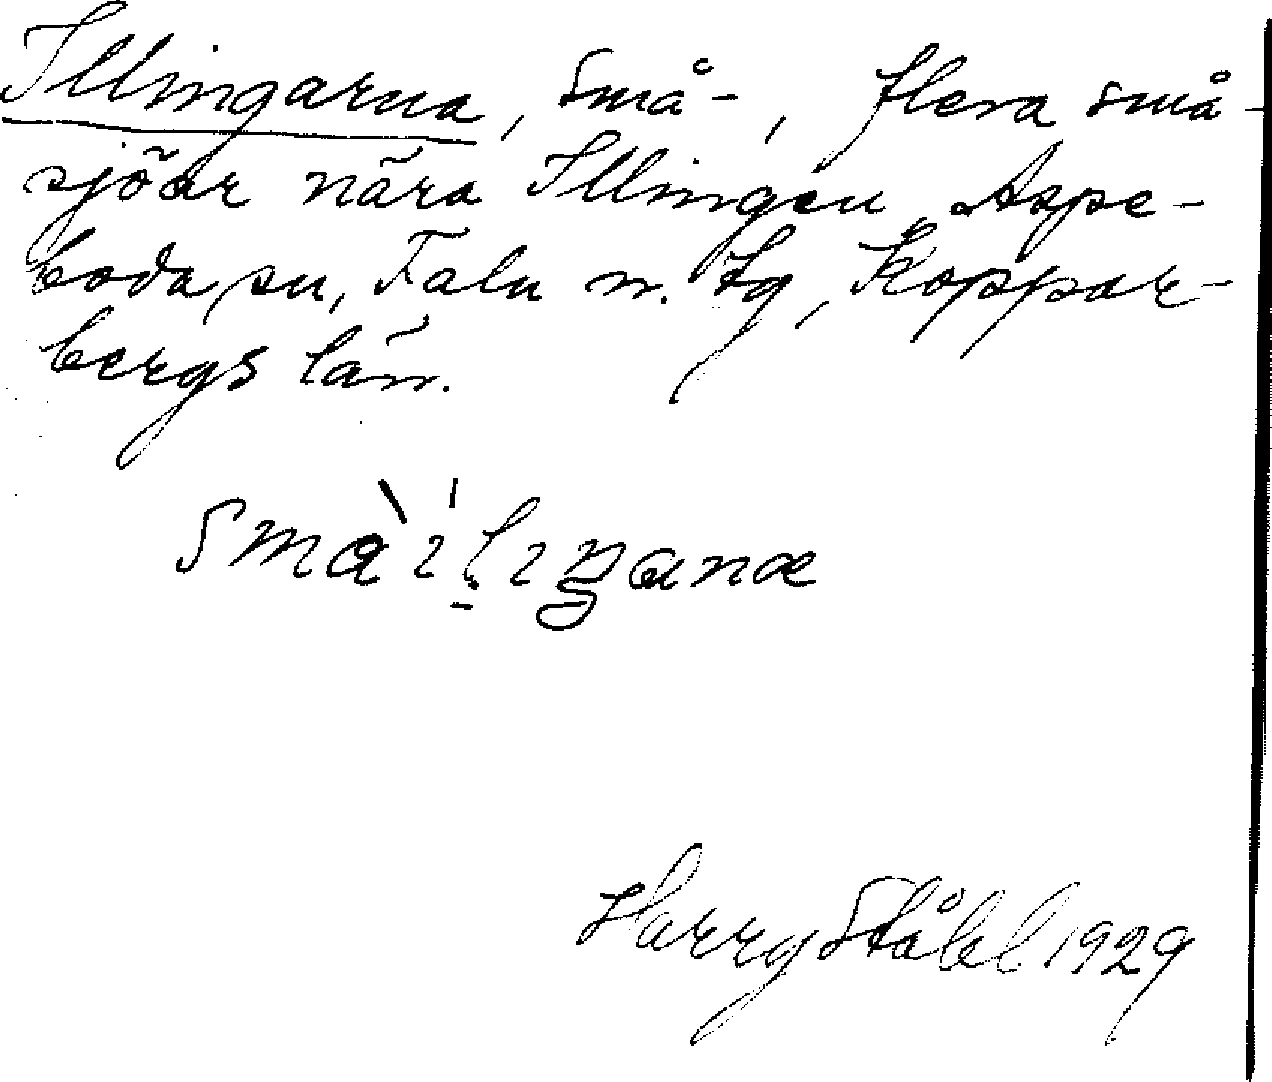 Illingarna, Små-, flera små-
sjöar nära Illingen, Aspe-
boda sn, Falu n. tg, Koppar-
bergs län.
Harry Ståhl 1929